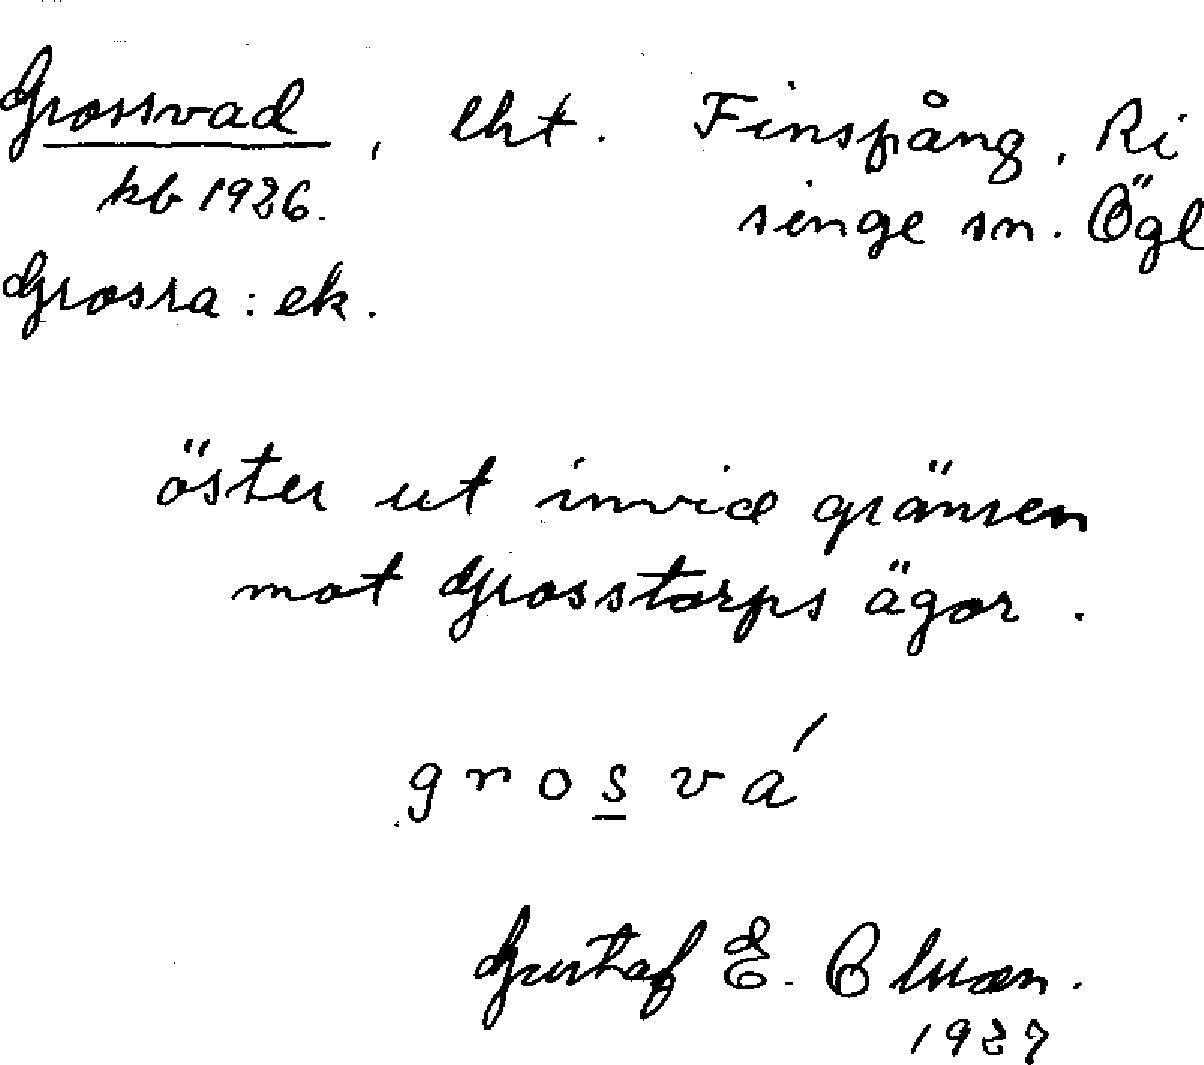 Grossvad, lht. Finspång, Ri
kb 1926. singe sn. Ögl
Grossa: ek.
öster ut invid gränsen
mot Grosstorps ägor.
grosvá
Gustaf E.
1927